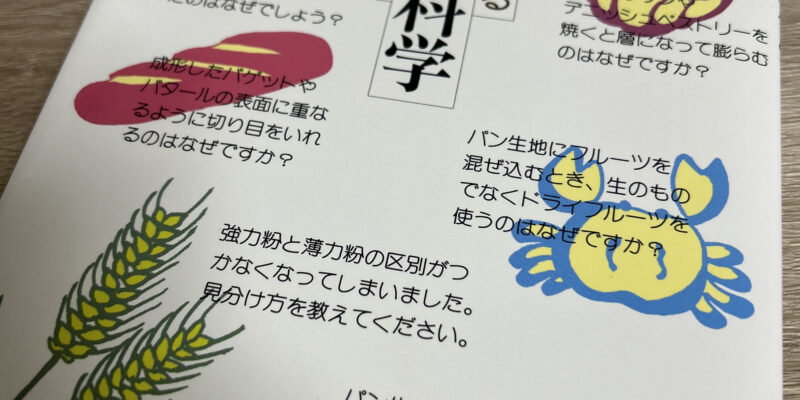 たのはなぜでしょう？
る
科学
デニッシュペストリーを
焼くと層になって膨らむ
のはなぜですか？
成形したバゲットや
バタールの表面に重な
るように切り目をいれ
るのはなぜですか？
パン生地にフルーツを
混ぜ込むとき、生のもの
でなくドライフルーツを
使うのはなぜですか？
強力粉と薄力粉の区別がつ
かなくなってしまいました。
見分け方を教えてください。
パン生